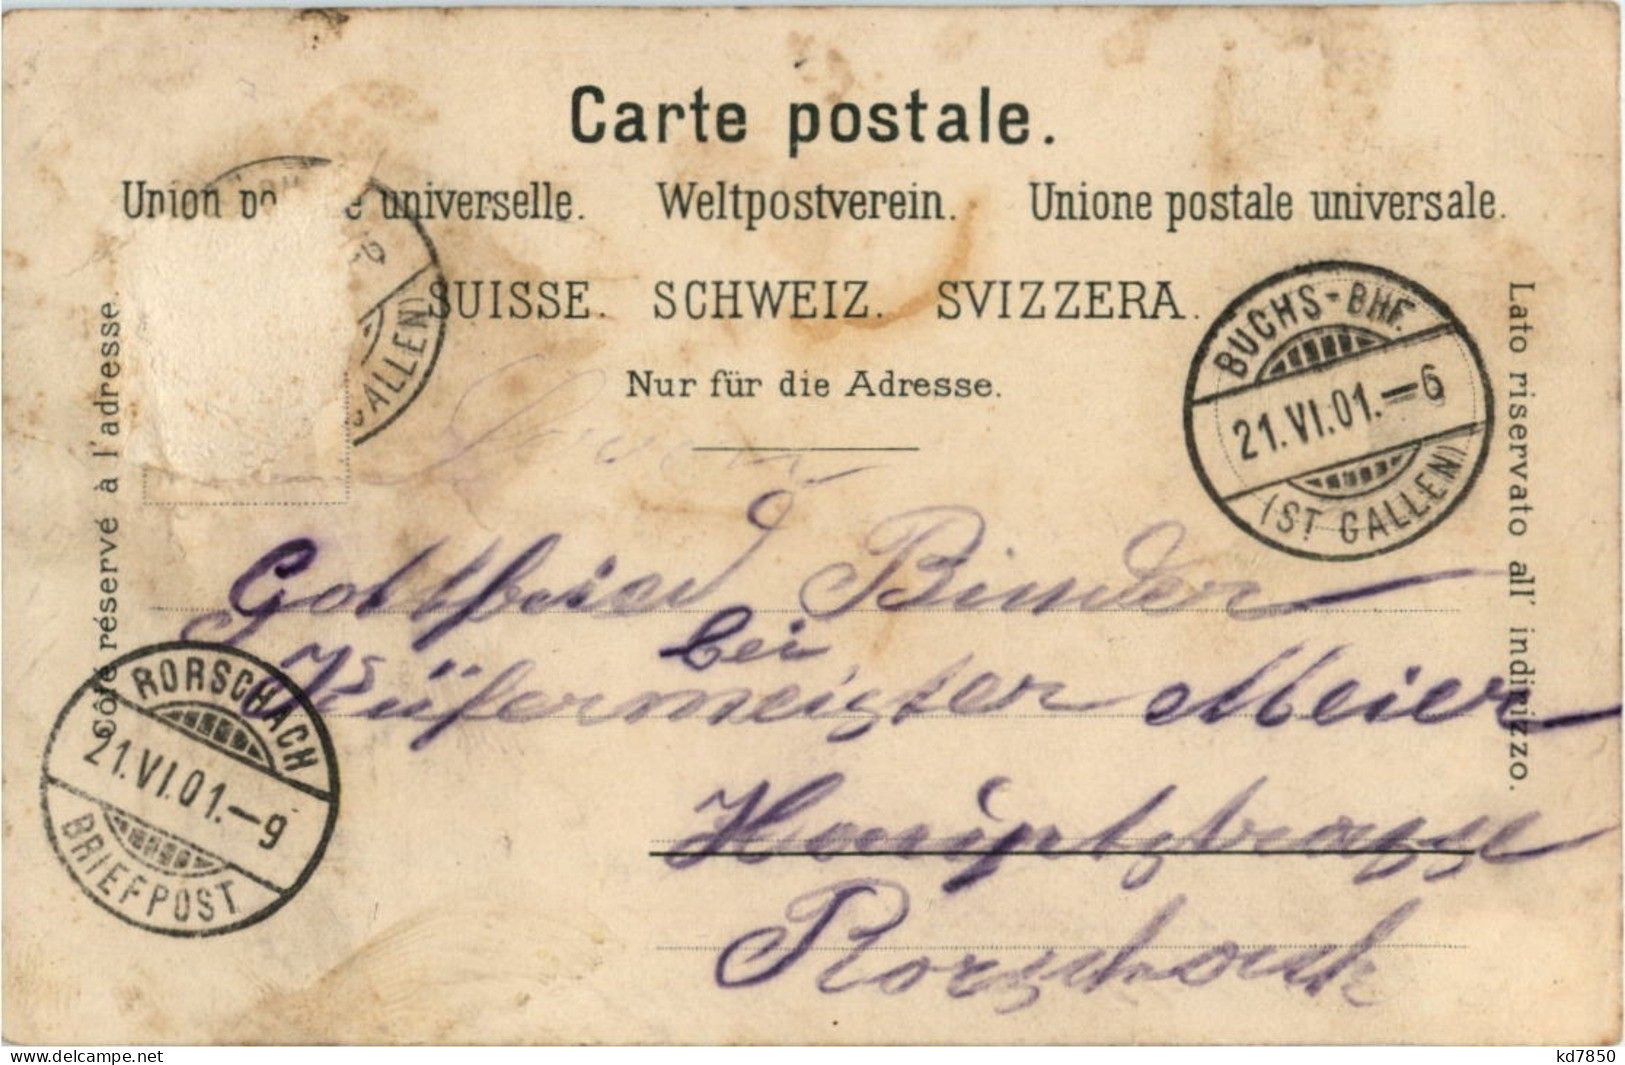 Carte postale.
Union po e universelle. Weltpostverein. Unione postale universale.
SUISSE. SCHWEIZ. SVIZZERA.
Nur für die Adresse.
Côté réservé à l'adresse.
Lato riservato all' indirizzo.
GALLEN)
BUCHS-BHF.
21.VI.01.-6
(ST GALLEN)
Gottfried Binder
bei
Küfermeister Meier
Hauptstrasse
Rorschach
RORSCHACH
21.VI.01.-9
BRIEFPOST
www.delcampe.net
kd7850